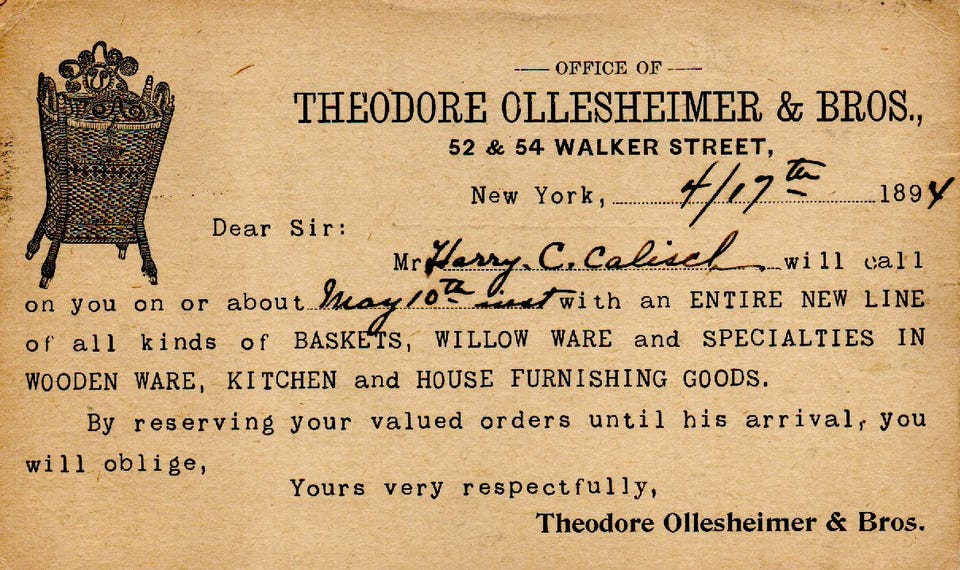 OFFICE OF
THEODORE OLLESHEIMER & BROS.,
52 & 54 WALKER STREET,
New York, 4/17th 1894
Dear Sir:
Mr Harry. C. Calisch will call
on you on or about May 10th inst with an ENTIRE NEW LINE
of all kinds of BASKETS, WILLOW WARE and SPECIALTIES IN
WOODEN WARE, KITCHEN and HOUSE FURNISHING GOODS.
By reserving your valued orders until his arrival, you
will oblige,
Yours very respectfully,
Theodore Ollesheimer & Bros.